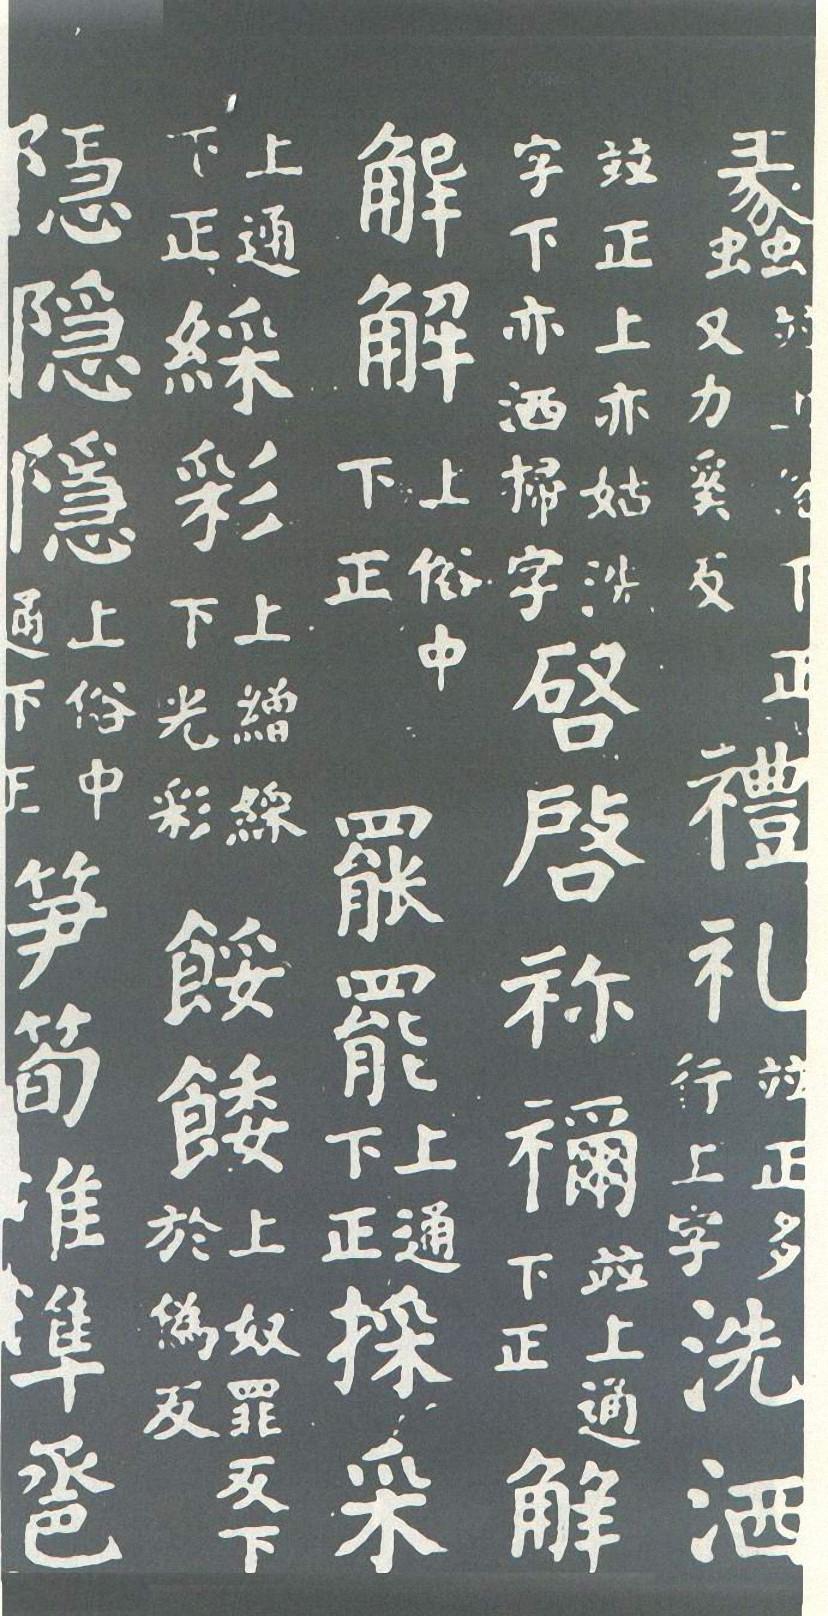 蠡並上俗下正又力奚反禮礼並正多行上字洗洒
並正上亦姑洗字下亦洒掃字啓啓祢禰並上通下正解
解解上俗中下正罷罷上通下正採采
上通下正綵彩上繒綵下光彩餒餧上奴罪反下於偽反
隠隠隱上俗中通下正笋筍准準卺